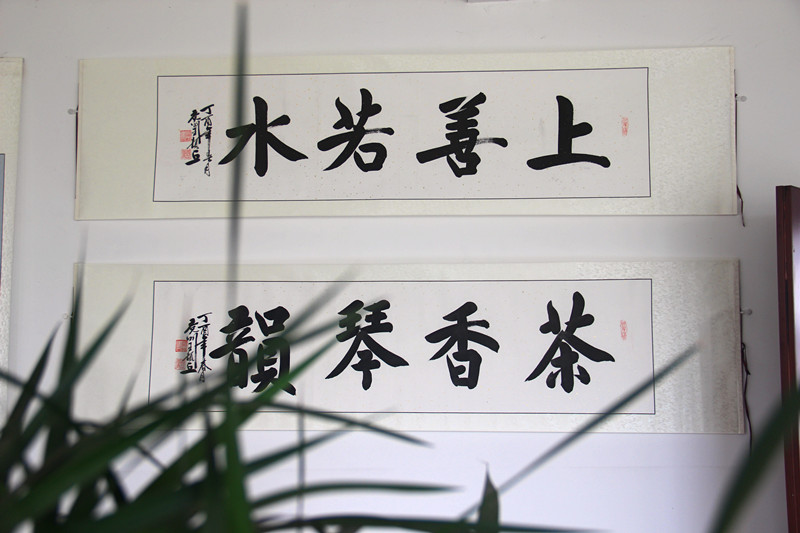 上善若水
丁酉年春月
茶香琴韻
丁酉年春月